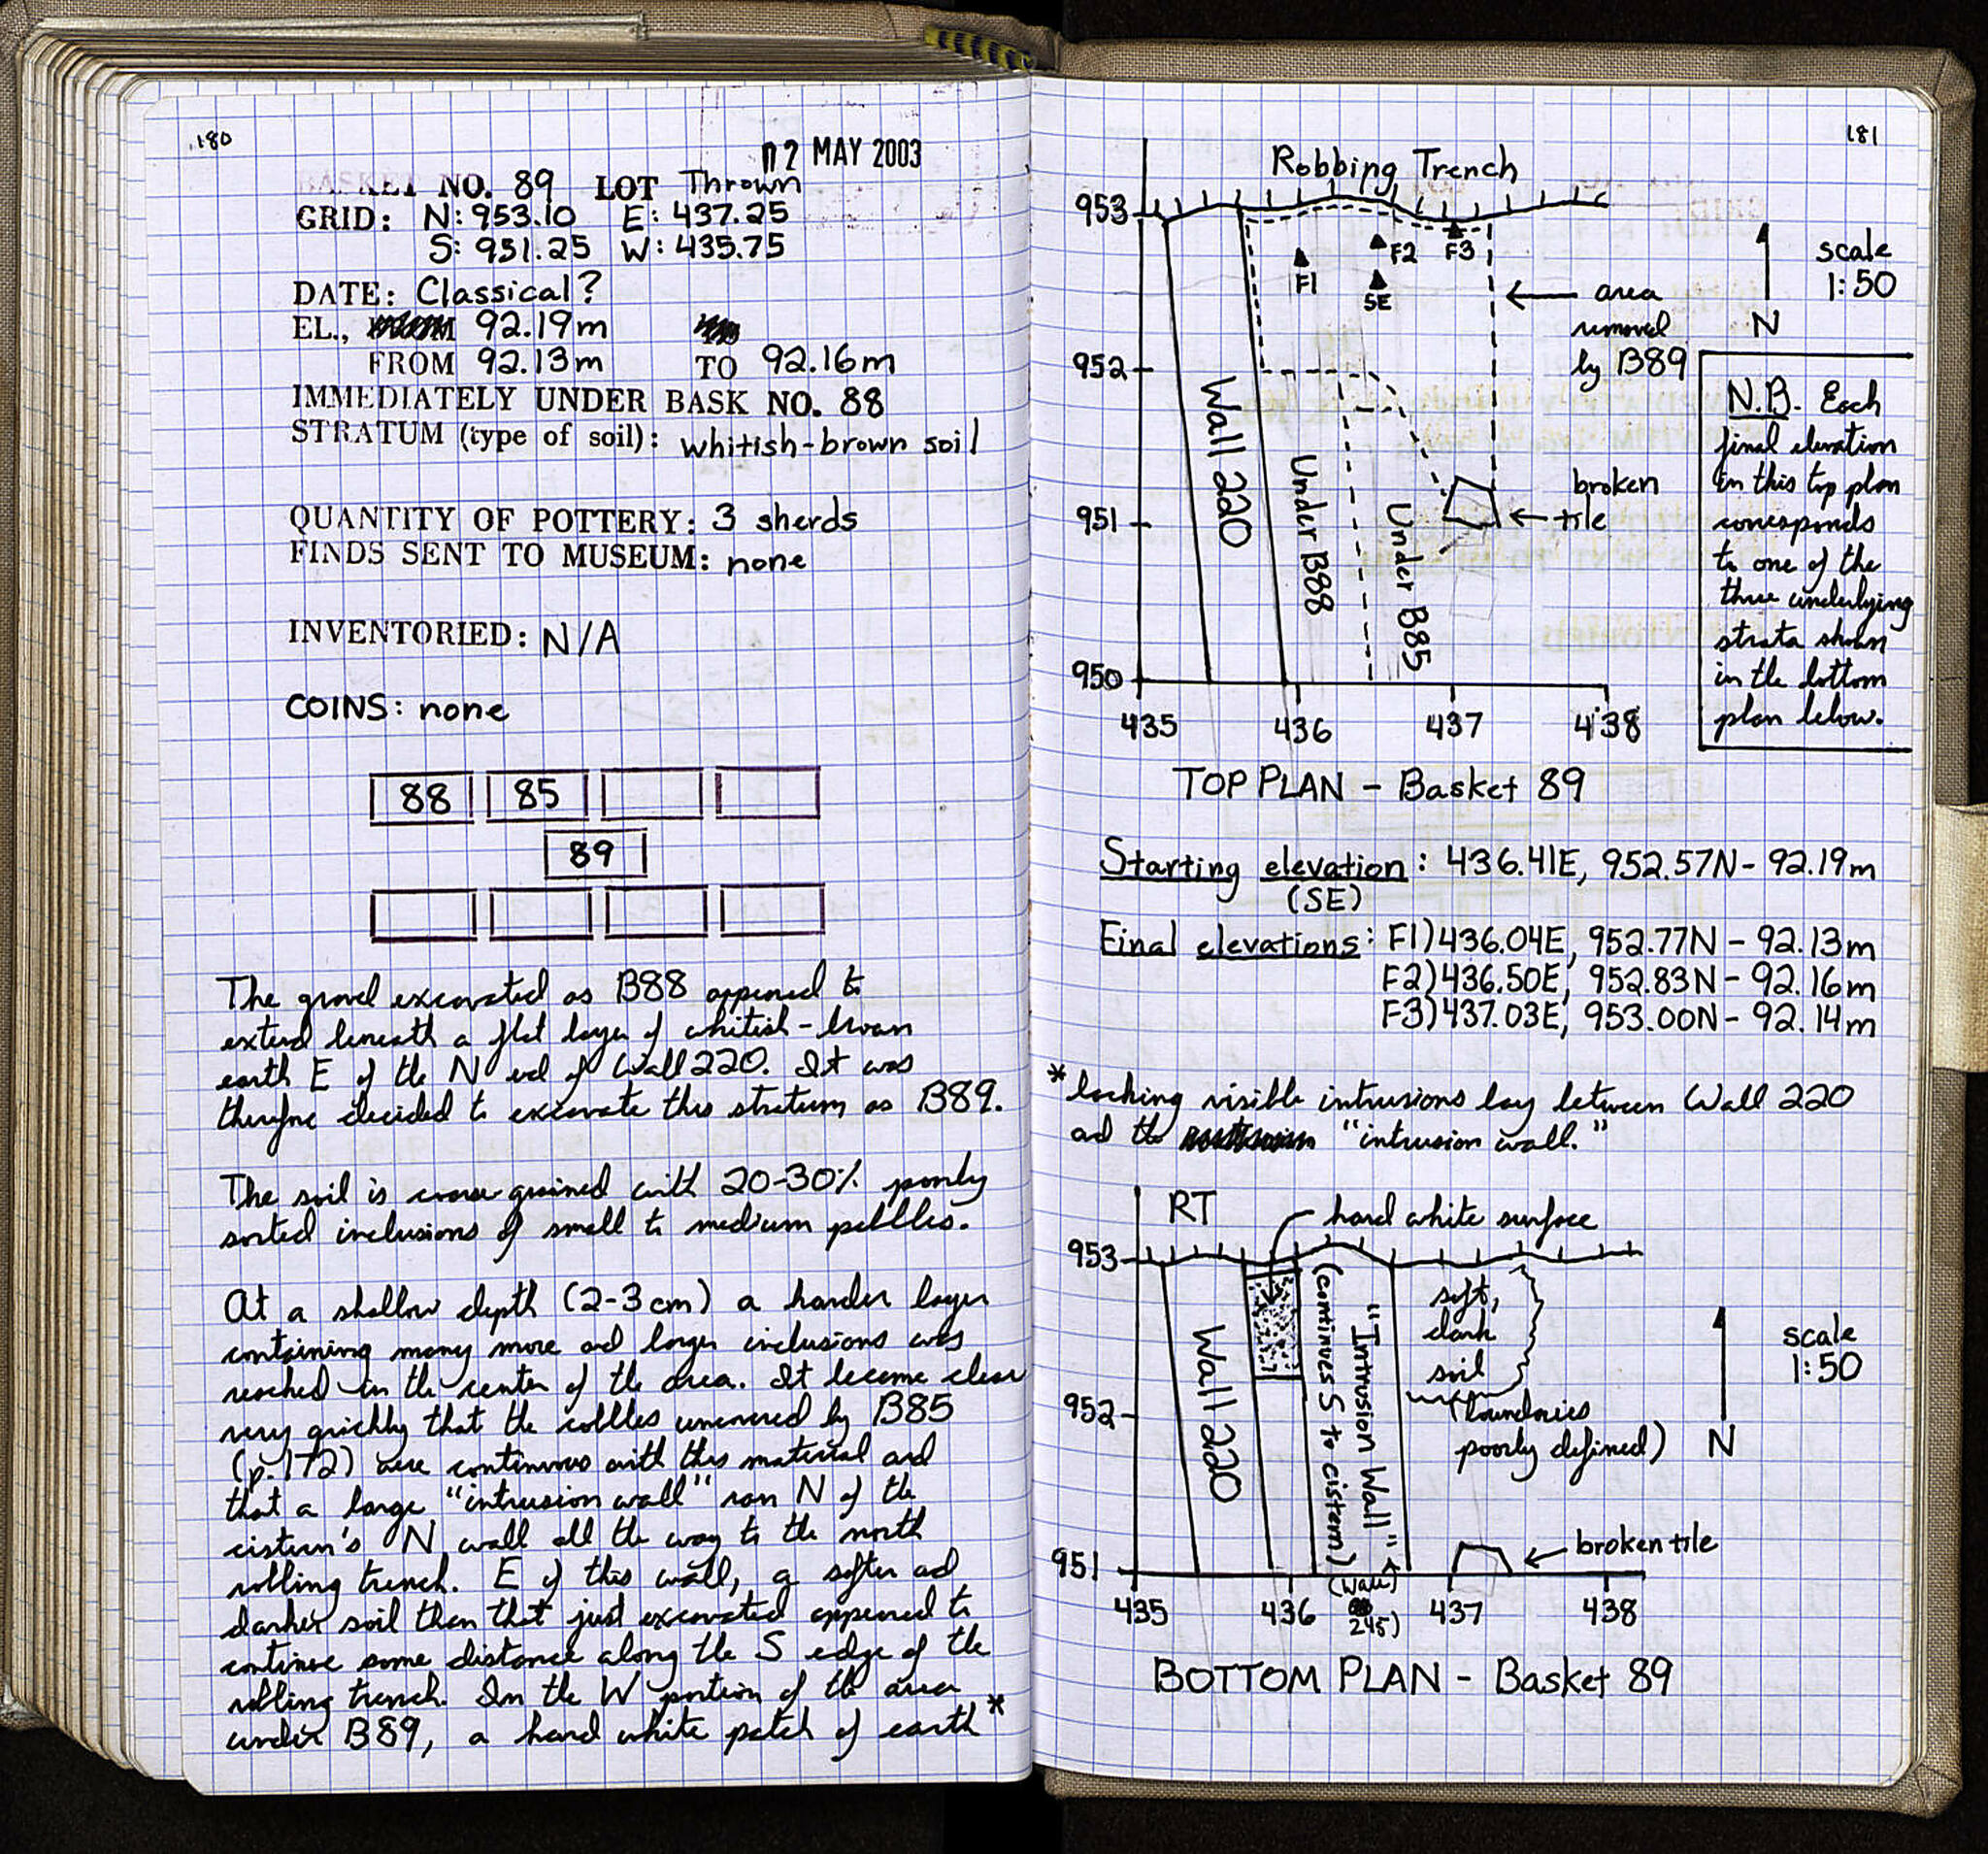 180
02 MAY 2003
BASKET NO. 89 LOT Thrown
GRID: N: 953.10 E: 437.25
S: 951.25 W: 435.75
DATE: Classical?
EL., 92.19m
FROM 92.13m TO 92.16m
IMMEDIATELY UNDER BASK NO. 88
STRATUM (type of soil): whitish-brown soil
QUANTITY OF POTTERY: 3 sherds
FINDS SENT TO MUSEUM: none
INVENTORIED: N/A
COINS: none
88 85
89
The gravel excavated as B88 appeared to
extend beneath a flat layer of whitish-brown
earth E of the N end of Wall 220. It was
therefore decided to excavate this stratum as B89.
The soil is coarse grained with 20-30% poorly
sorted inclusions of small to medium pebbles.
At a shallow depth (2-3cm) a harder layer
containing many more and larger inclusions was
reached in the center of the area. It became clear
very quickly that the cobbles uncovered by B85
(p.172) were continuous with this material and
that a large "intrusion wall" ran N of the
cistern's N wall all the way to the north
robbing trench. E of this wall, a softer and
darker soil than that just excavated appeared to
continue some distance along the S edge of the
robbing trench. In the W portion of the area
under B89, a hard white patch of earth*
181
Robbing Trench
953
F1
F2
F3
SE
← area
removed
by B89
scale
1:50
N
952
Wall 220
Under B88
Under B85
951
broken
← tile
950
435 436 437 438
N.B. Each
final elevation
in this top plan
corresponds
to one of the
three underlying
strata shown
in the bottom
plan below.
TOP PLAN - Basket 89
Starting elevation: 436.41E, 952.57N - 92.19m
(SE)
Final elevations: F1) 436.04E, 952.77N - 92.13m
F2) 436.50E, 952.83N - 92.16m
F3) 437.03E, 953.00N - 92.14m
*lacking visible intrusions lay between Wall 220
and the "intrusion wall."
RT
hard white surface
953
Wall 220
"Intrusion Wall"
(continues S to cistern)
soft,
dark
soil
(boundaries
poorly defined)
scale
1:50
N
952
951
← broken tile
(Wall
245)
435 436 437 438
BOTTOM PLAN - Basket 89